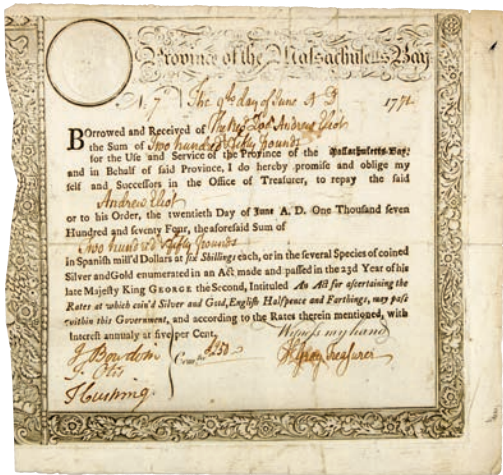 Province of the Massachusetts Bay
N. 7 The 9th day of June A D 177
Borrowed and Received of The Revd Andrew Eliot
the Sum of Two hundred & fifty Pounds
for the Use and Service of the Province of the Massachusetts-Bay;
and in Behalf of said Province, I do hereby promise and oblige my
self and Successors in the Office of Treasurer, to repay the said
Andrew Eliot
or to his Order, the twentieth Day of June A. D. One Thousand seven
Hundred and seventy Four, the aforesaid Sum of
Two hundred & fifty Pounds
in Spanish mill'd Dollars at six Shillings each, or in the several Species of coined
Silver and Gold enumerated in an Act made and passed in the 23d Year of his
late Majesty King GEORGE the Second, Intituled An Act for ascertaining the
Rates at which coin'd Silver and Gold, English Halfpence and Farthings, may pass
within this Government, and according to the Rates therein mentioned, with
Interest annualy at five per Cent.
Witness my hand
J Bowdoin
£250
H Gray Treasurer
J Otis
T Cushing